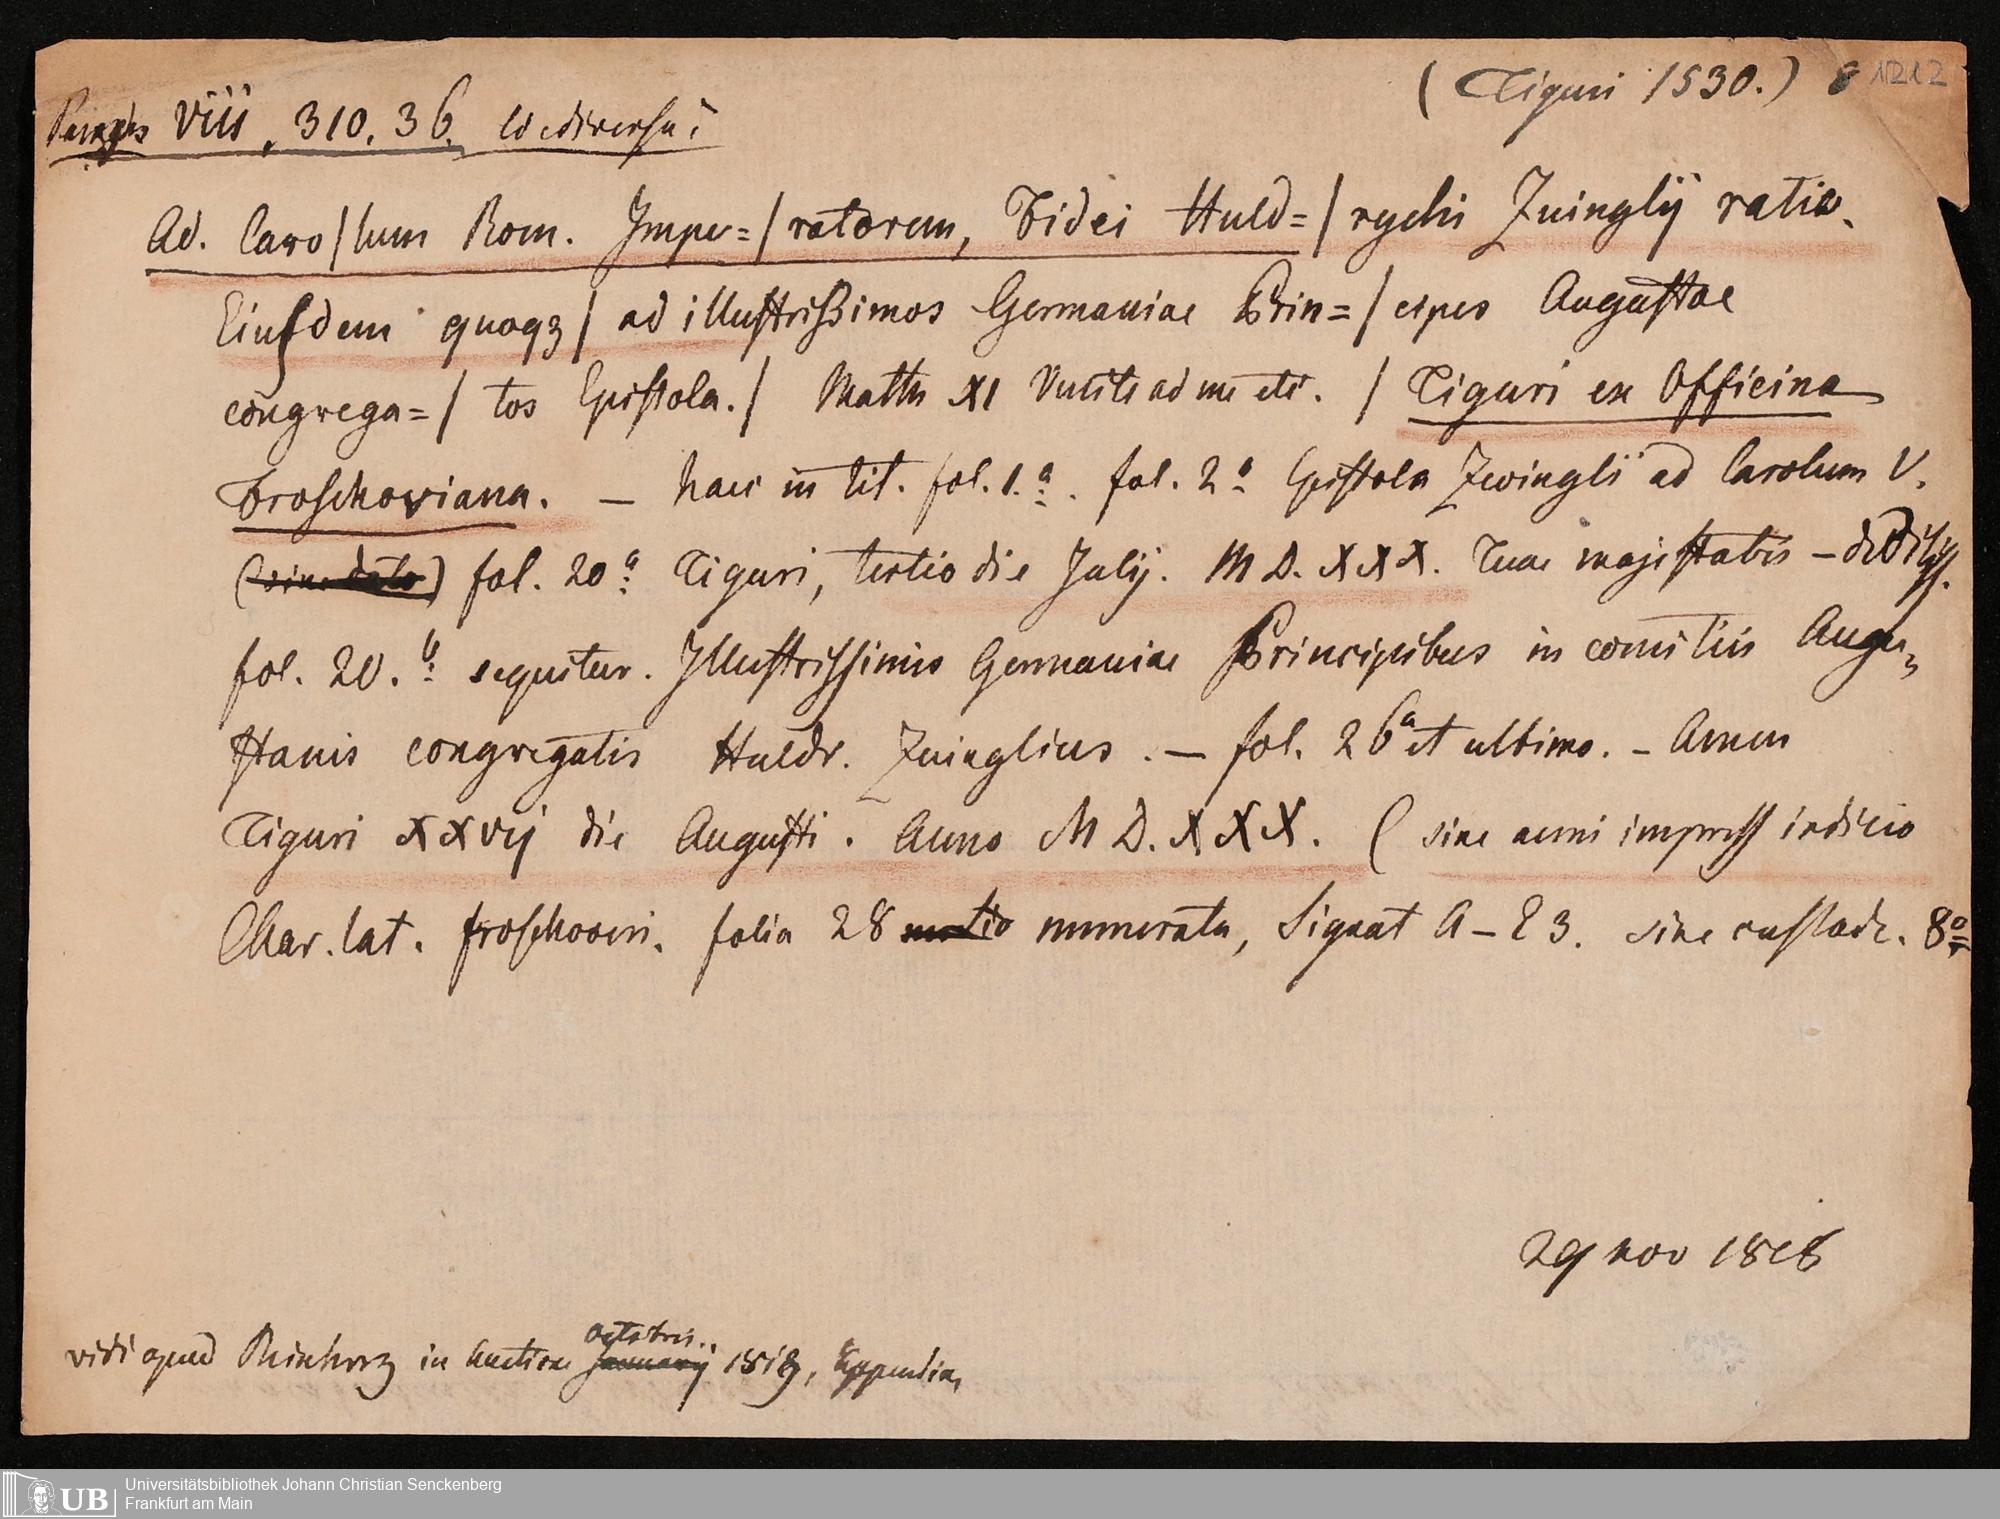 (Tiguri 1530.) 8 1212
Panzer VIII, 310. 36.
Ad. Caro/lum Rom. Impe=/ratorem, Fidei Huld=/rychi Zuinglij ratio.
Eiusdem quoqȝ / ad illustrißimos Germaniae Prin=/cipes Augustae
congrega=/ tos Epistola. / Matth XI Venite ad me etc. / Tiguri ex Officina
Froschoviana. – haec in tit. fol. 1.a. fol. 2a Epistola Zwinglii ad Carolum V.
(sine dato) fol. 20a Tiguri, tertio die Julij. M D. XXX. Tuae majestatis – deditiss.
fol. 20.b sequitur. Illustrissimis Germaniae Principibus in comitiis Augu„
stanis congregatis Huldr. Zuinglius. – fol. 26a et ultimo. – Amen
Tiguri XXvij die Augusti. Anno M D. XXX. ( sine anni impress indicio
Char. lat. froschoveri. folia 28 numerata, Signat A–E 3. sine custode. 8o
29 nov 1818
vidi apud in Auctione Januarij Octobris 1818,